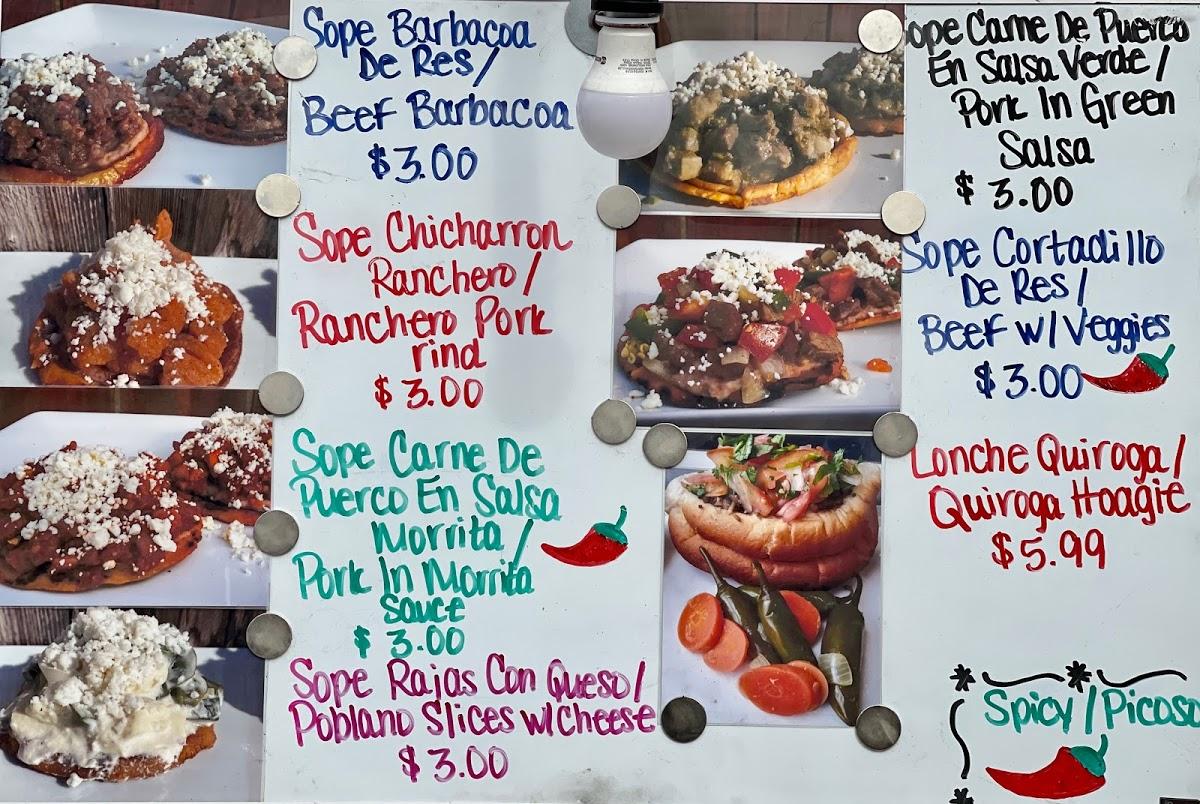 Sope Barbacoa
De Res/
Beef Barbacoa
$3.00
Sope Chicharron
Ranchero/
Ranchero Pork
rind
$3.00
Sope Carne De
Puerco En Salsa
Morrita/
Pork In Morrita
Sauce
$3.00
Sope Rajas Con Queso/
Poblano Slices w/Cheese
$3.00
ope Carne De Puerco
En Salsa Verde/
Pork In Green
Salsa
$3.00
Sope Cortadillo
De Res/
Beef w/Veggies
$3.00
Lonche Quiroga/
Quiroga Hoagie
$5.99
Spicy/Picoso